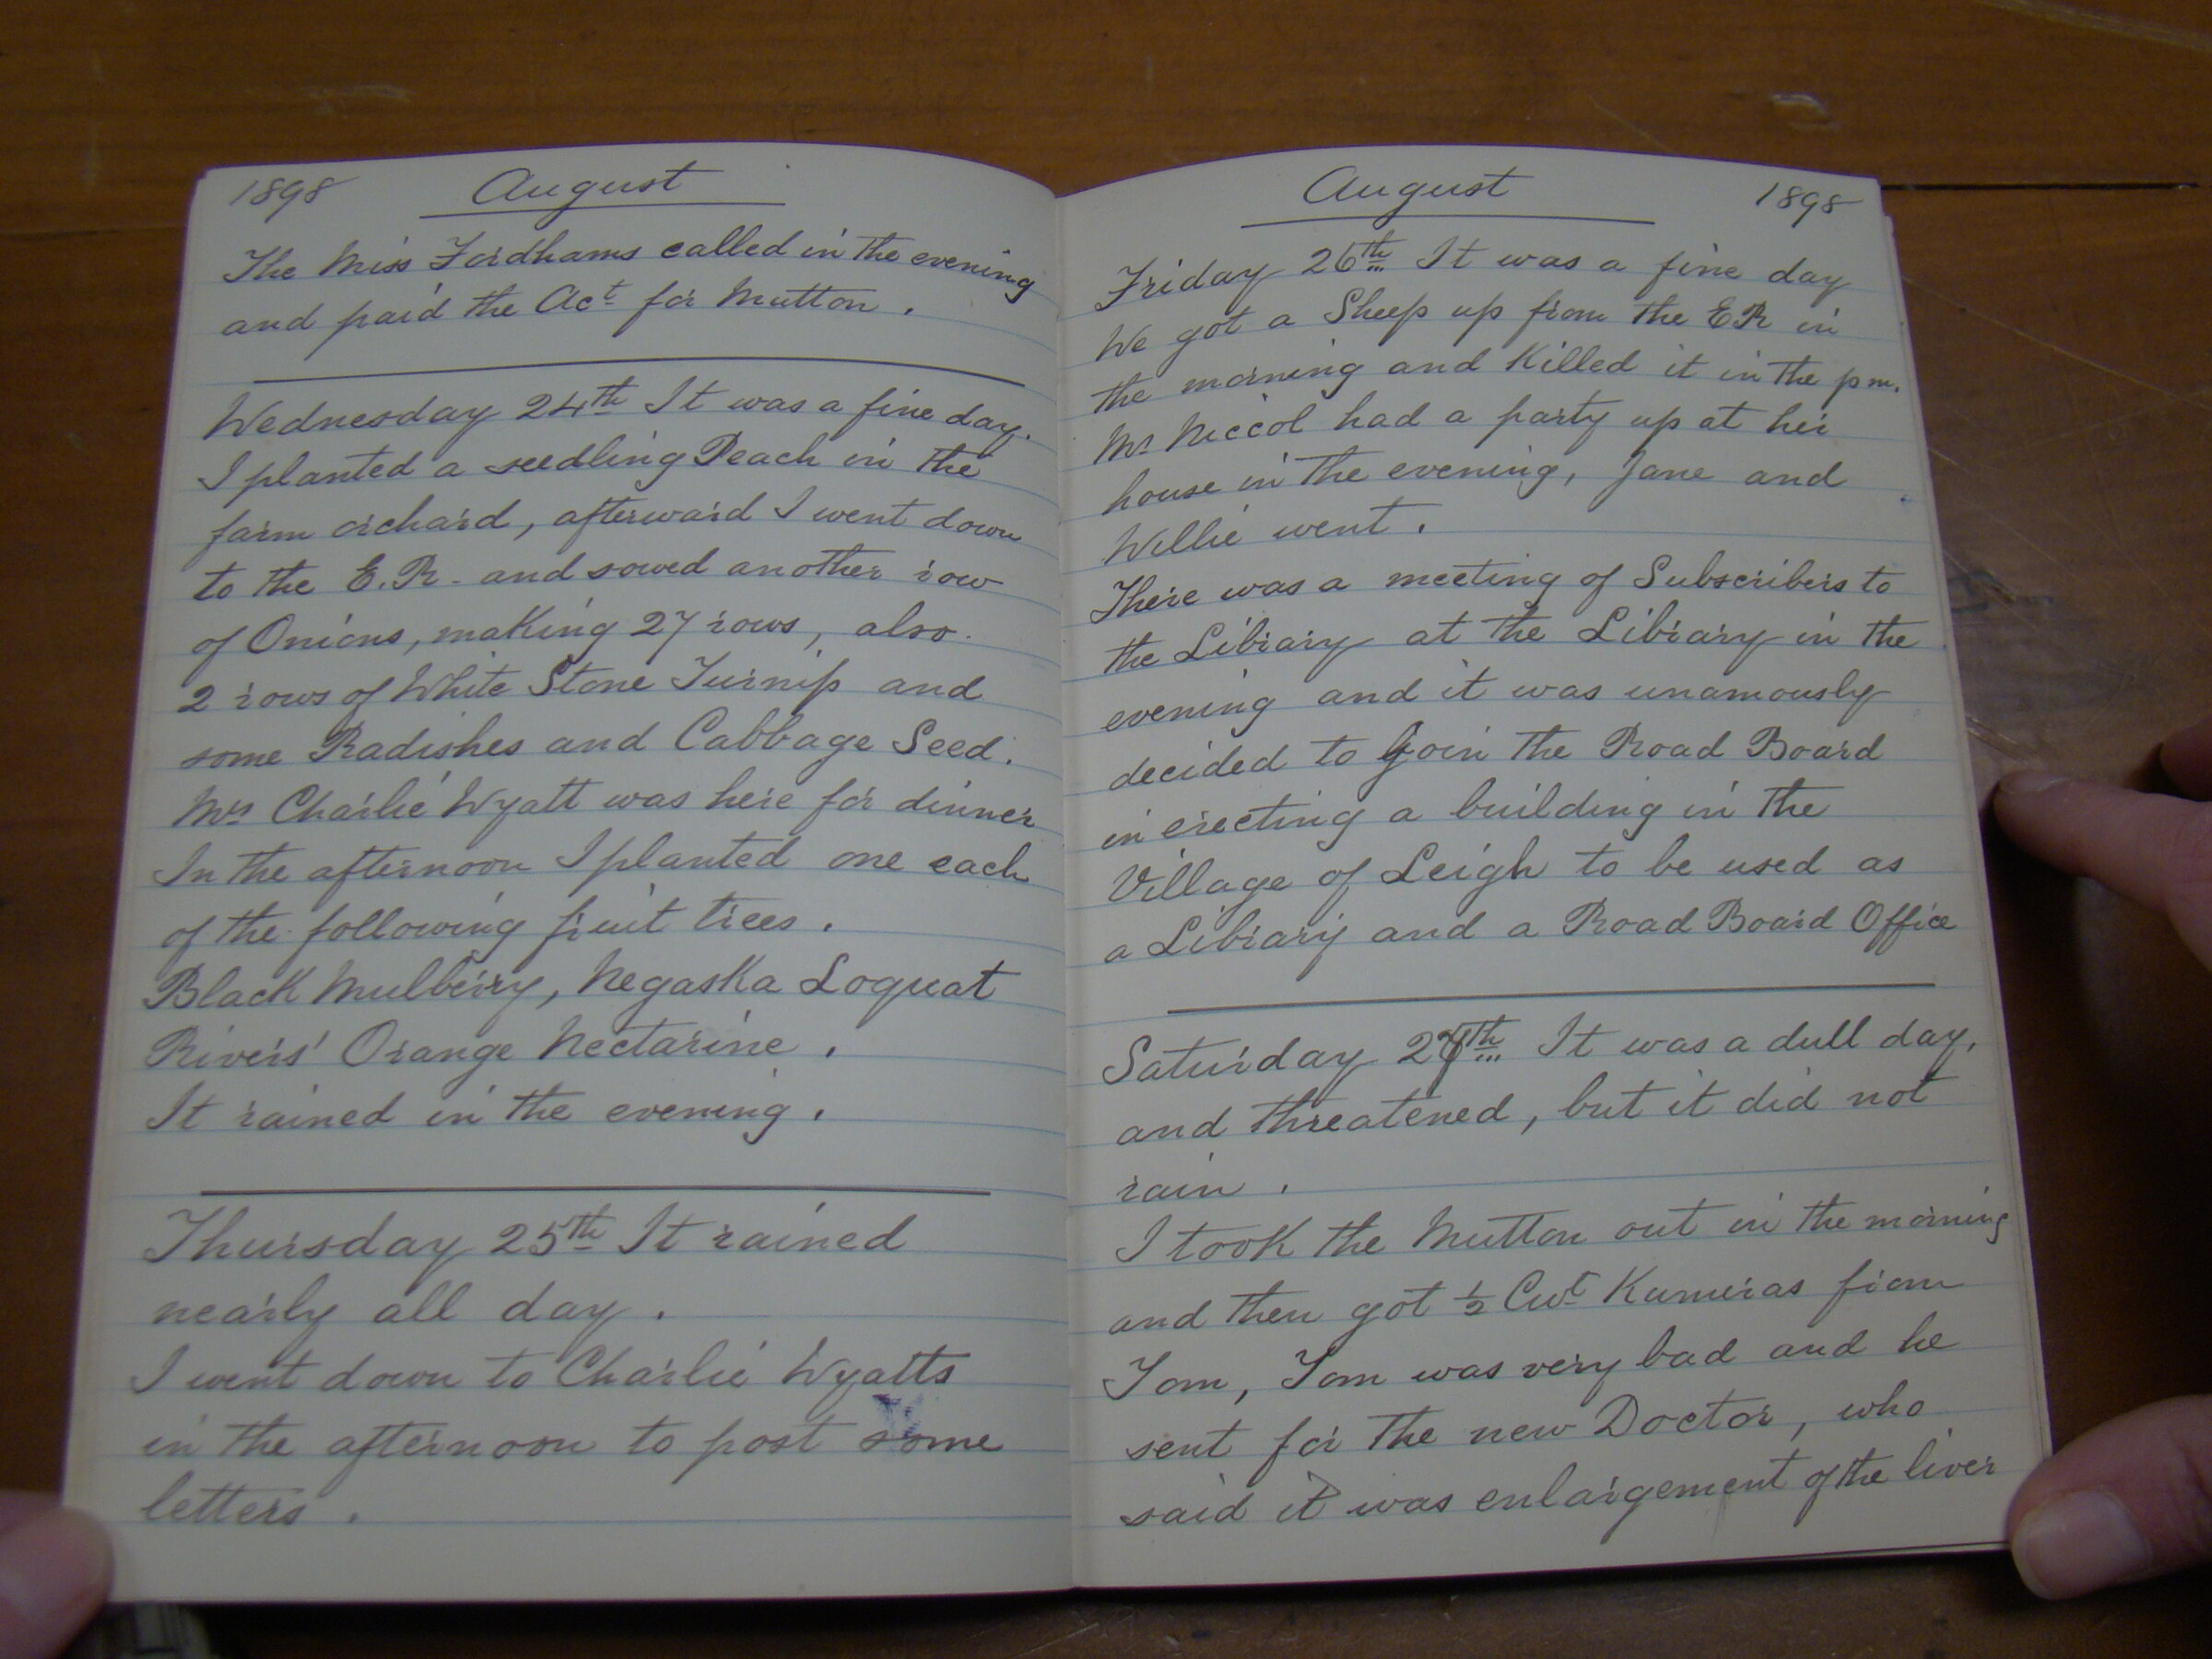 1898 August
The Miss Fordhams called in the evening
and paid the Act for Mutton.
Wednesday 24th It was a fine day.
I planted a seedling Peach in the
farm orchard, afterward I went down
to the E.R. and sowed another row
of Onions, making 27 rows, also
2 rows of White Stone Turnip and
some Radishes and Cabbage Seed.
Mrs Charlie Wyatt was here for dinner
In the afternoon I planted one each
of the following fruit trees.
Black Mulberry, Negaska Loquat
Rivers' Orange Nectarine.
It rained in the evening.
Thursday 25th It rained
nearly all day.
I went down to Charlie Wyatts
in the afternoon to post some
letters.
August 1898
Friday 26th It was a fine day
We got a Sheep up from the ER in
the morning and Killed it in the pm.
Mrs Niccol had a party up at her
house in the evening, Jane and
Willie went.
There was a meeting of Subscribers to
the Library at the Library in the
evening and it was unamously
decided to Join the Road Board
in erecting a building in the
Village of Leigh to be used as
a Library and a Road Board Office
Saturday 27th It was a dull day,
and threatened, but it did not
rain.
I took the Mutton out in the morning
and then got ½ Cwt Kumeras from
Tom, Tom was very bad and he
sent for the new Doctor, who
said it was enlargement of the liver